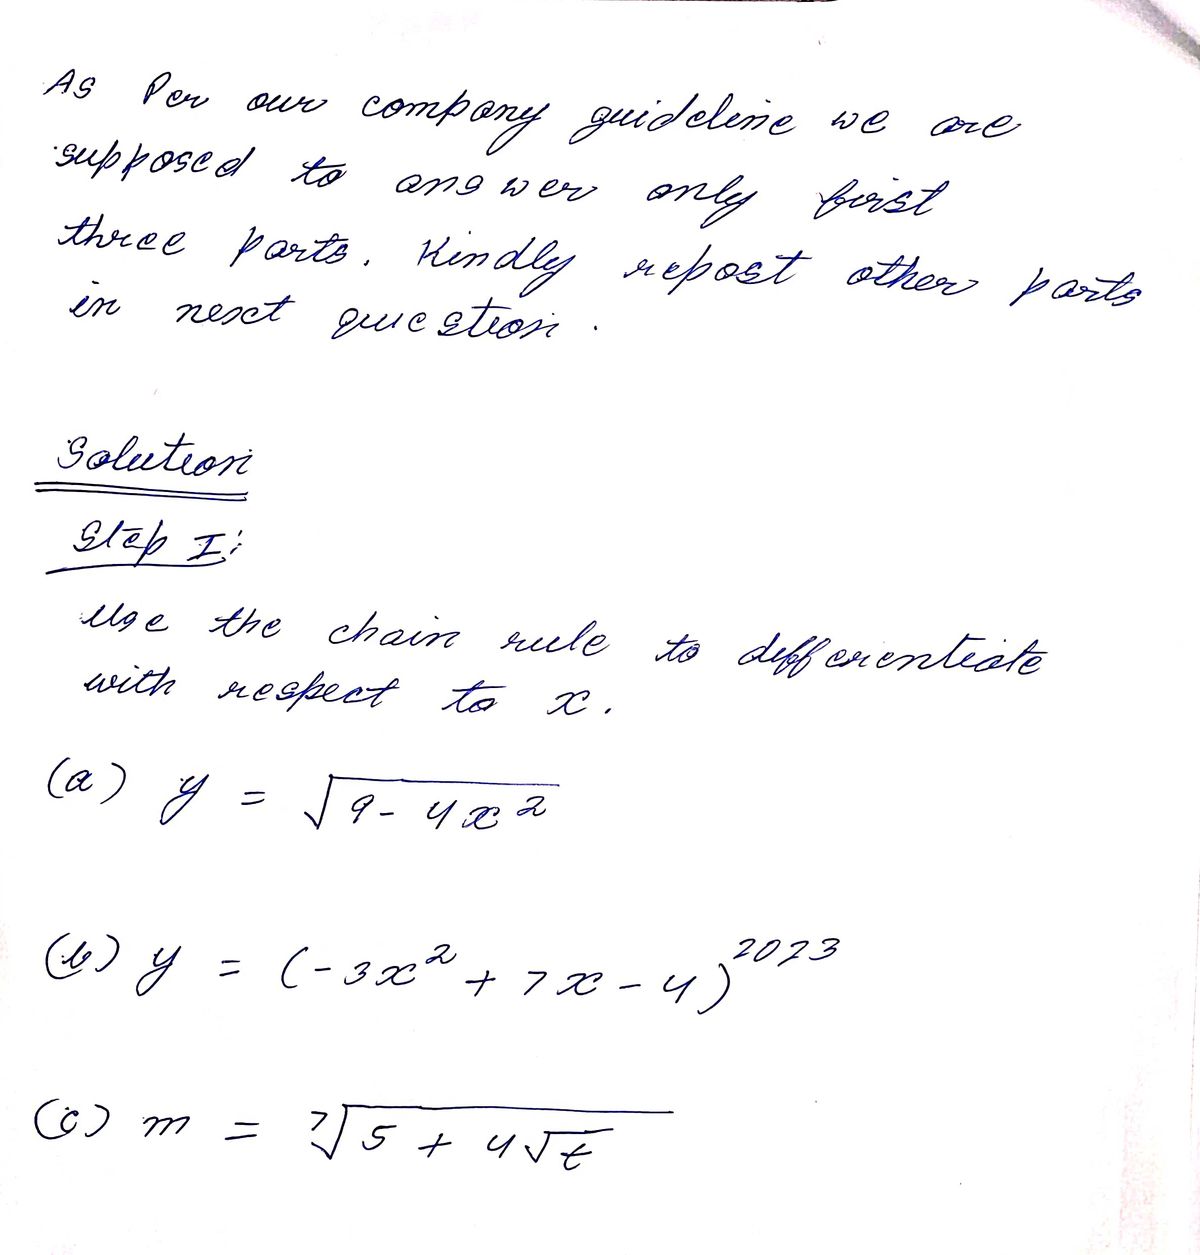 As Per our company guideline we are
supposed to answer only first
three parts. Kindly repost other parts
in next question.
Solution
Step I:
Use the chain rule to differentiate
with respect to x.
(a) y = √(9 - 4x²)
(b) y = (-3x² + 7x - 4)²⁰²³
(c) m = ⁷√(5 + 4√t)